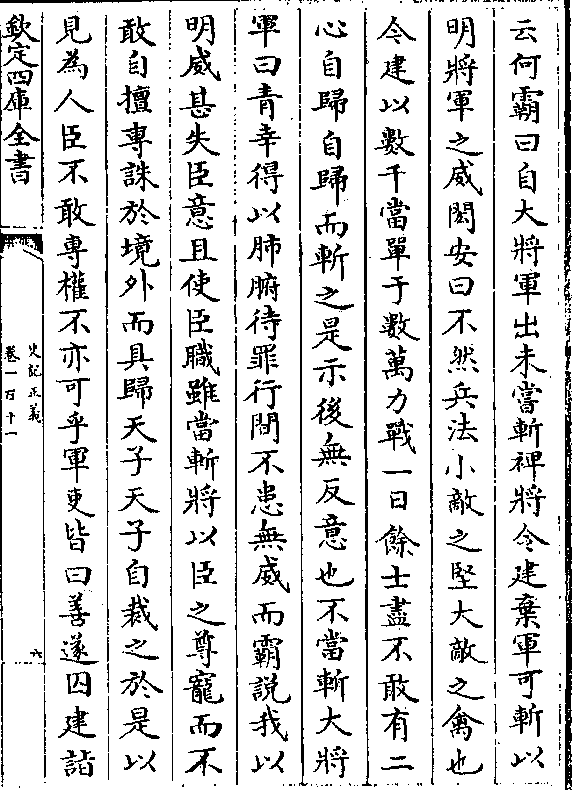 云何霸曰自大將軍出未嘗斬裨將今建棄軍可斬以
明將軍之威閎安曰不然兵法小敵之堅大敵之禽也
今建以數千當單于數萬力戰一日餘士盡不敢有二
心自歸自歸而斬之是示後無反意也不當斬大將
軍曰青幸得以肺腑待罪行間不患無威而霸説我以
明威甚失臣意且使臣職雖當斬將以臣之尊寵而不
敢自擅專誅於境外而具歸天子天子自裁之於是以
見為人臣不敢專權不亦可乎軍吏皆曰善遂囚建詣
欽定四庫全書
史記正義
卷一百十一
六